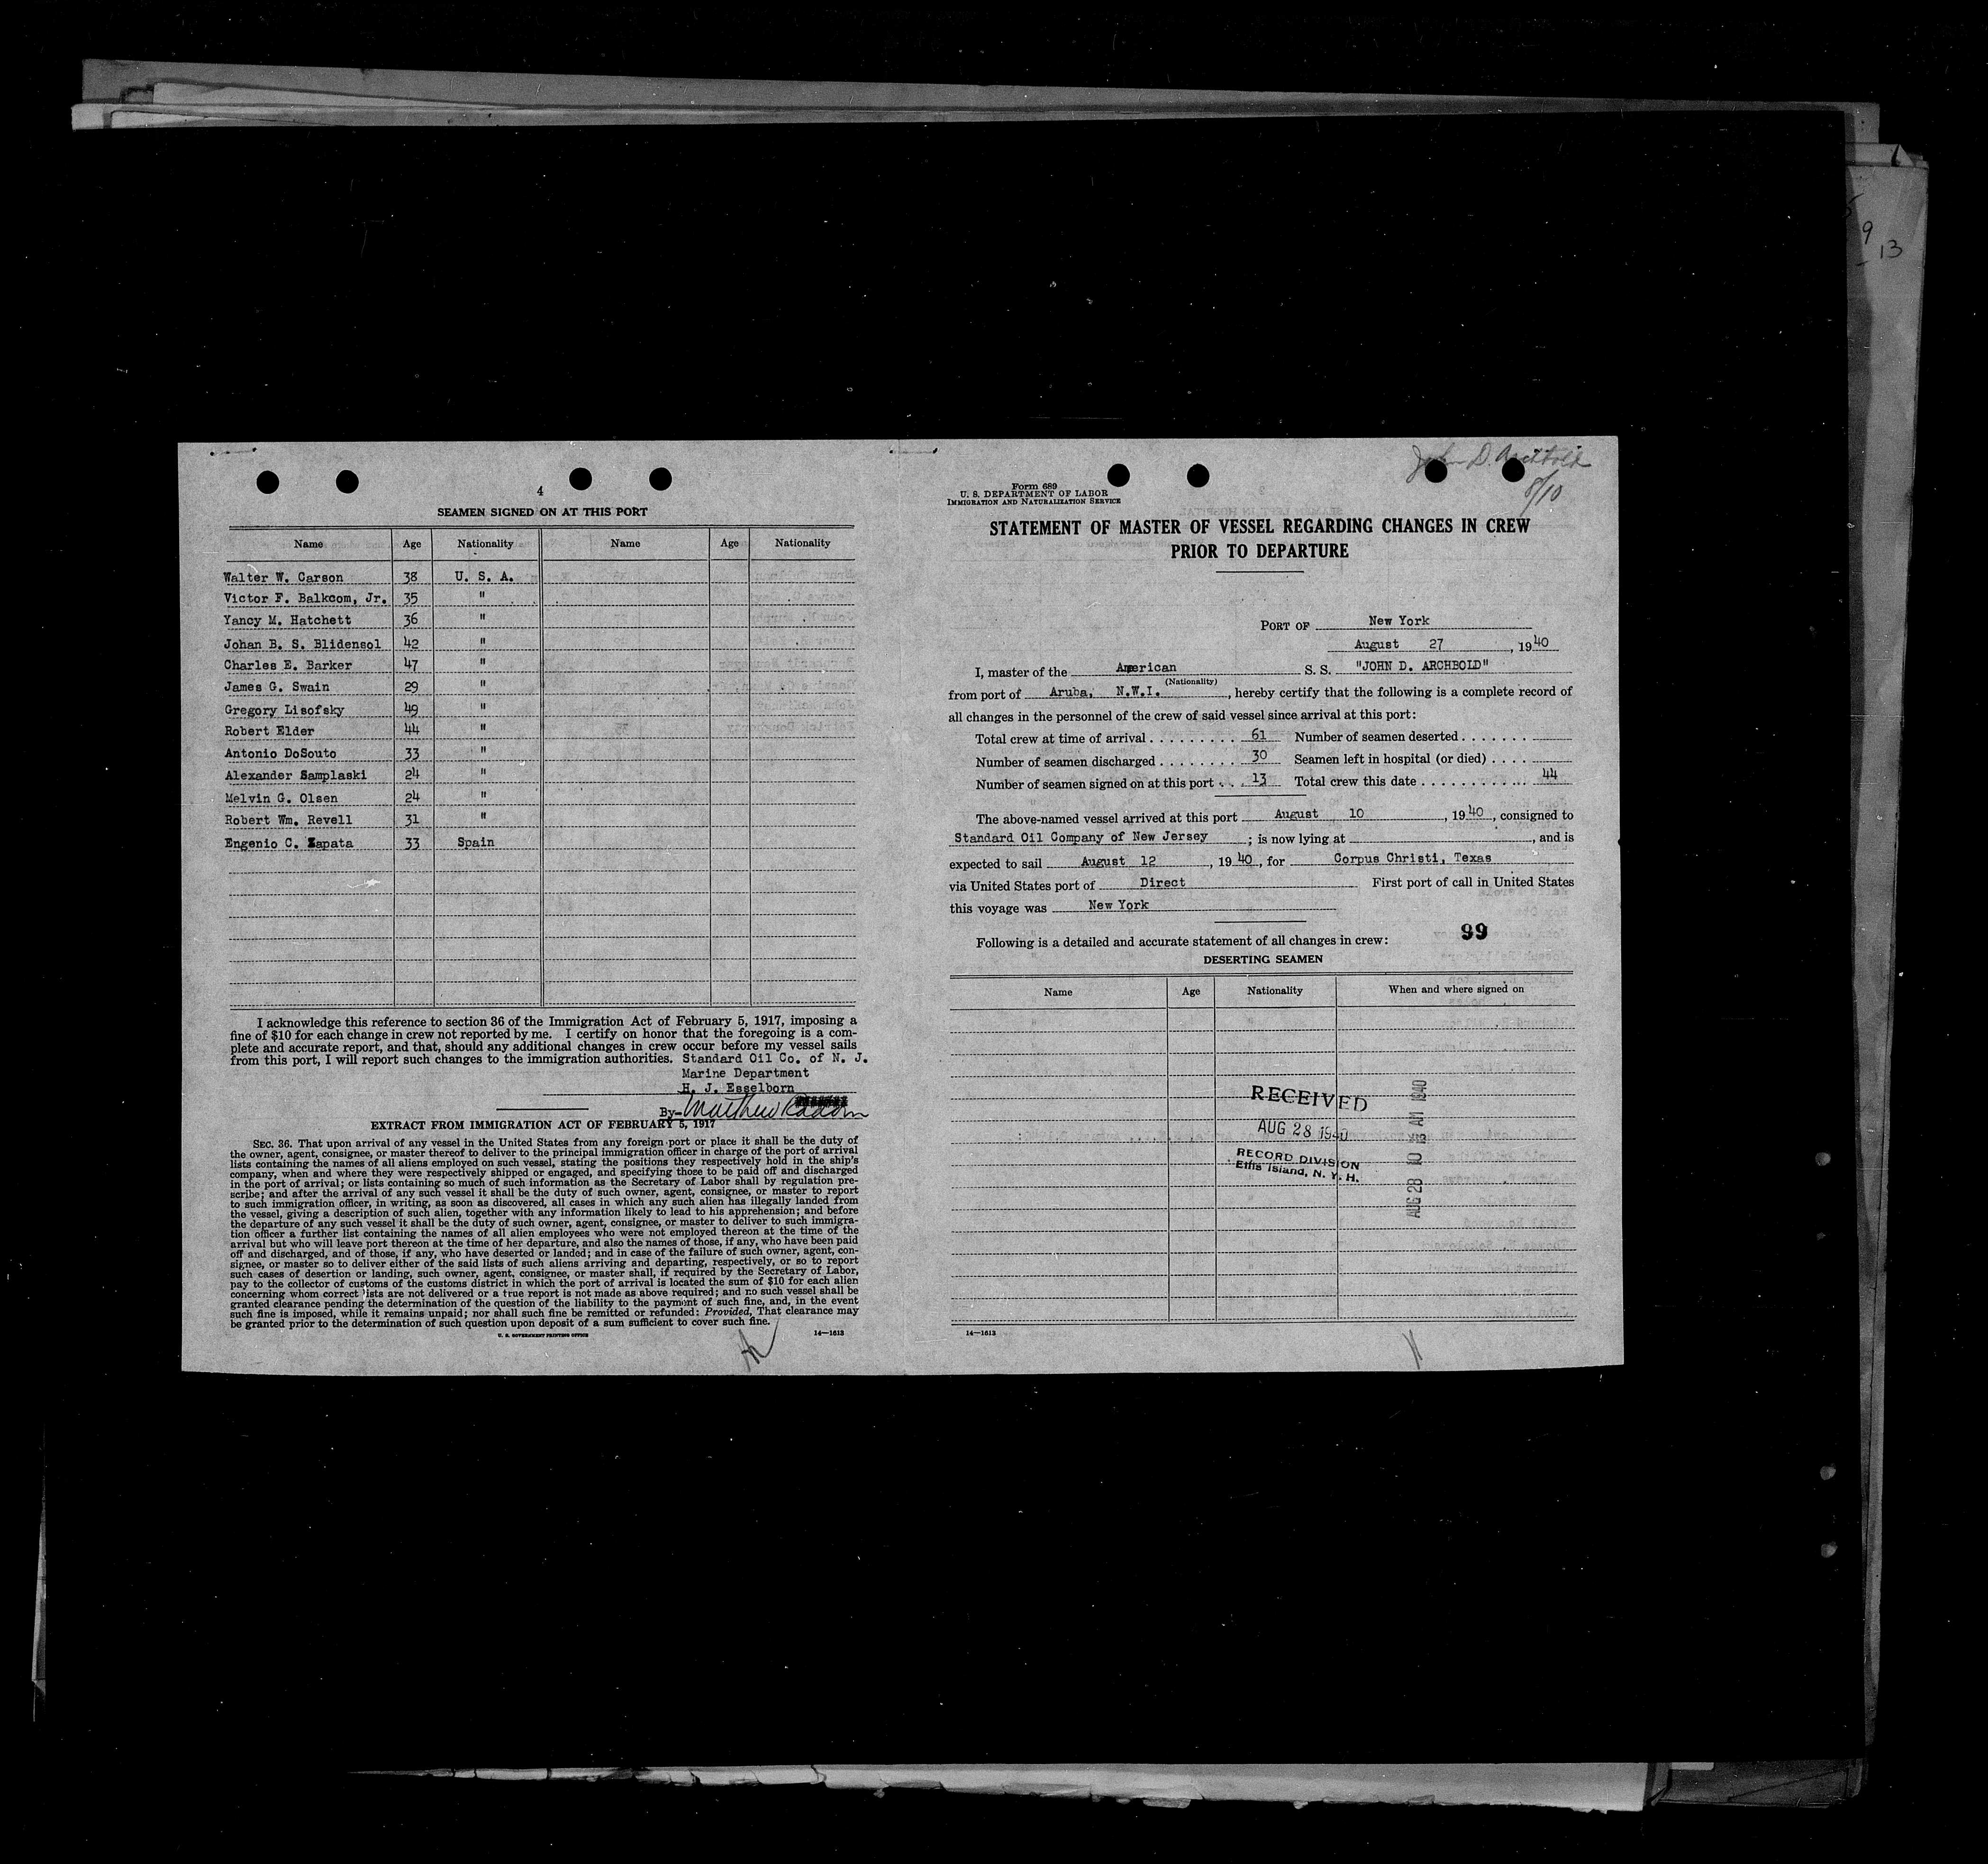 4
SEAMEN SIGNED ON AT THIS PORT
Name Age Nationality Name Age Nationality
Walter W. Carson 38 U. S. A.
Victor F. Balkcom, Jr. 35 "
Yancy M. Hatchett 36 "
Johan B. S. Blidensol 42 "
Charles E. Barker 47 "
James G. Swain 29 "
Gregory Lisofsky 49 "
Robert Elder 44 "
Antonio DoSouto 33 "
Alexander Samplaski 24 "
Melvin G. Olsen 24 "
Robert Wm. Revell 31 "
Engenio C. Zapata 33 Spain
I acknowledge this reference to section 36 of the Immigration Act of February 5, 1917, imposing a
fine of $10 for each change in crew not reported by me. I certify on honor that the foregoing is a com-
plete and accurate report, and that, should any additional changes in crew occur before my vessel sails
from this port, I will report such changes to the immigration authorities. Standard Oil Co. of N. J.
Marine Department
H. J. Esselborn
By- Matthew
EXTRACT FROM IMMIGRATION ACT OF FEBRUARY 5, 1917
SEC. 36. That upon arrival of any vessel in the United States from any foreign port or place it shall be the duty of
the owner, agent, consignee, or master thereof to deliver to the principal immigration officer in charge of the port of arrival
lists containing the names of all aliens employed on such vessel, stating the positions they respectively hold in the ship's
company, when and where they were respectively shipped or engaged, and specifying those to be paid off and discharged
in the port of arrival; or lists containing so much of such information as the Secretary of Labor shall by regulation pre-
scribe; and after the arrival of any such vessel it shall be the duty of such owner, agent, consignee, or master to report
to such immigration officer, in writing, as soon as discovered, all cases in which any such alien has illegally landed from
the vessel, giving a description of such alien, together with any information likely to lead to his apprehension; and before
the departure of any such vessel it shall be the duty of such owner, agent, consignee, or master to deliver to such immigra-
tion officer a further list containing the names of all alien employees who were not employed thereon at the time of the
arrival but who will leave port thereon at the time of her departure, and also the names of those, if any, who have been paid
off and discharged, and of those, if any, who have deserted or landed; and in case of the failure of such owner, agent, con-
signee, or master so to deliver either of the said lists of such aliens arriving and departing, respectively, or so to report
such cases of desertion or landing, such owner, agent, consignee, or master shall, if required by the Secretary of Labor,
pay to the collector of customs of the customs district in which the port of arrival is located the sum of $10 for each alien
concerning whom correct lists are not delivered or a true report is not made as above required; and no such vessel shall be
granted clearance pending the determination of the question of the liability to the payment of such fine, and, in the event
such fine is imposed, while it remains unpaid; nor shall such fine be remitted or refunded: Provided, That clearance may
be granted prior to the determination of such question upon deposit of a sum sufficient to cover such fine.
U. S. GOVERNMENT PRINTING OFFICE 14—1613
John D. Archbold
8/10
Form 689
U. S. DEPARTMENT OF LABOR
IMMIGRATION AND NATURALIZATION SERVICE
STATEMENT OF MASTER OF VESSEL REGARDING CHANGES IN CREW
PRIOR TO DEPARTURE
PORT OF New York
August 27, 1940
I, master of the American S. S. "JOHN D. ARCHBOLD"
(Nationality)
from port of Aruba, N.W.I., hereby certify that the following is a complete record of
all changes in the personnel of the crew of said vessel since arrival at this port:
Total crew at time of arrival . . . . . . . . . 61 Number of seamen deserted . . . . . . .
Number of seamen discharged . . . . . . . . 30 Seamen left in hospital (or died) . . . .
Number of seamen signed on at this port . . . 13 Total crew this date . . . . . . . . . . . . 44
The above-named vessel arrived at this port August 10, 1940, consigned to
Standard Oil Company of New Jersey; is now lying at , and is
expected to sail August 12, 1940, for Corpus Christi, Texas
via United States port of Direct First port of call in United States
this voyage was New York
99
Following is a detailed and accurate statement of all changes in crew:
DESERTING SEAMEN
Name Age Nationality When and where signed on
RECEIVED
AUG 28 1940
RECORD DIVISION
Ellis Island, N. Y. H.
14—1613
9
13